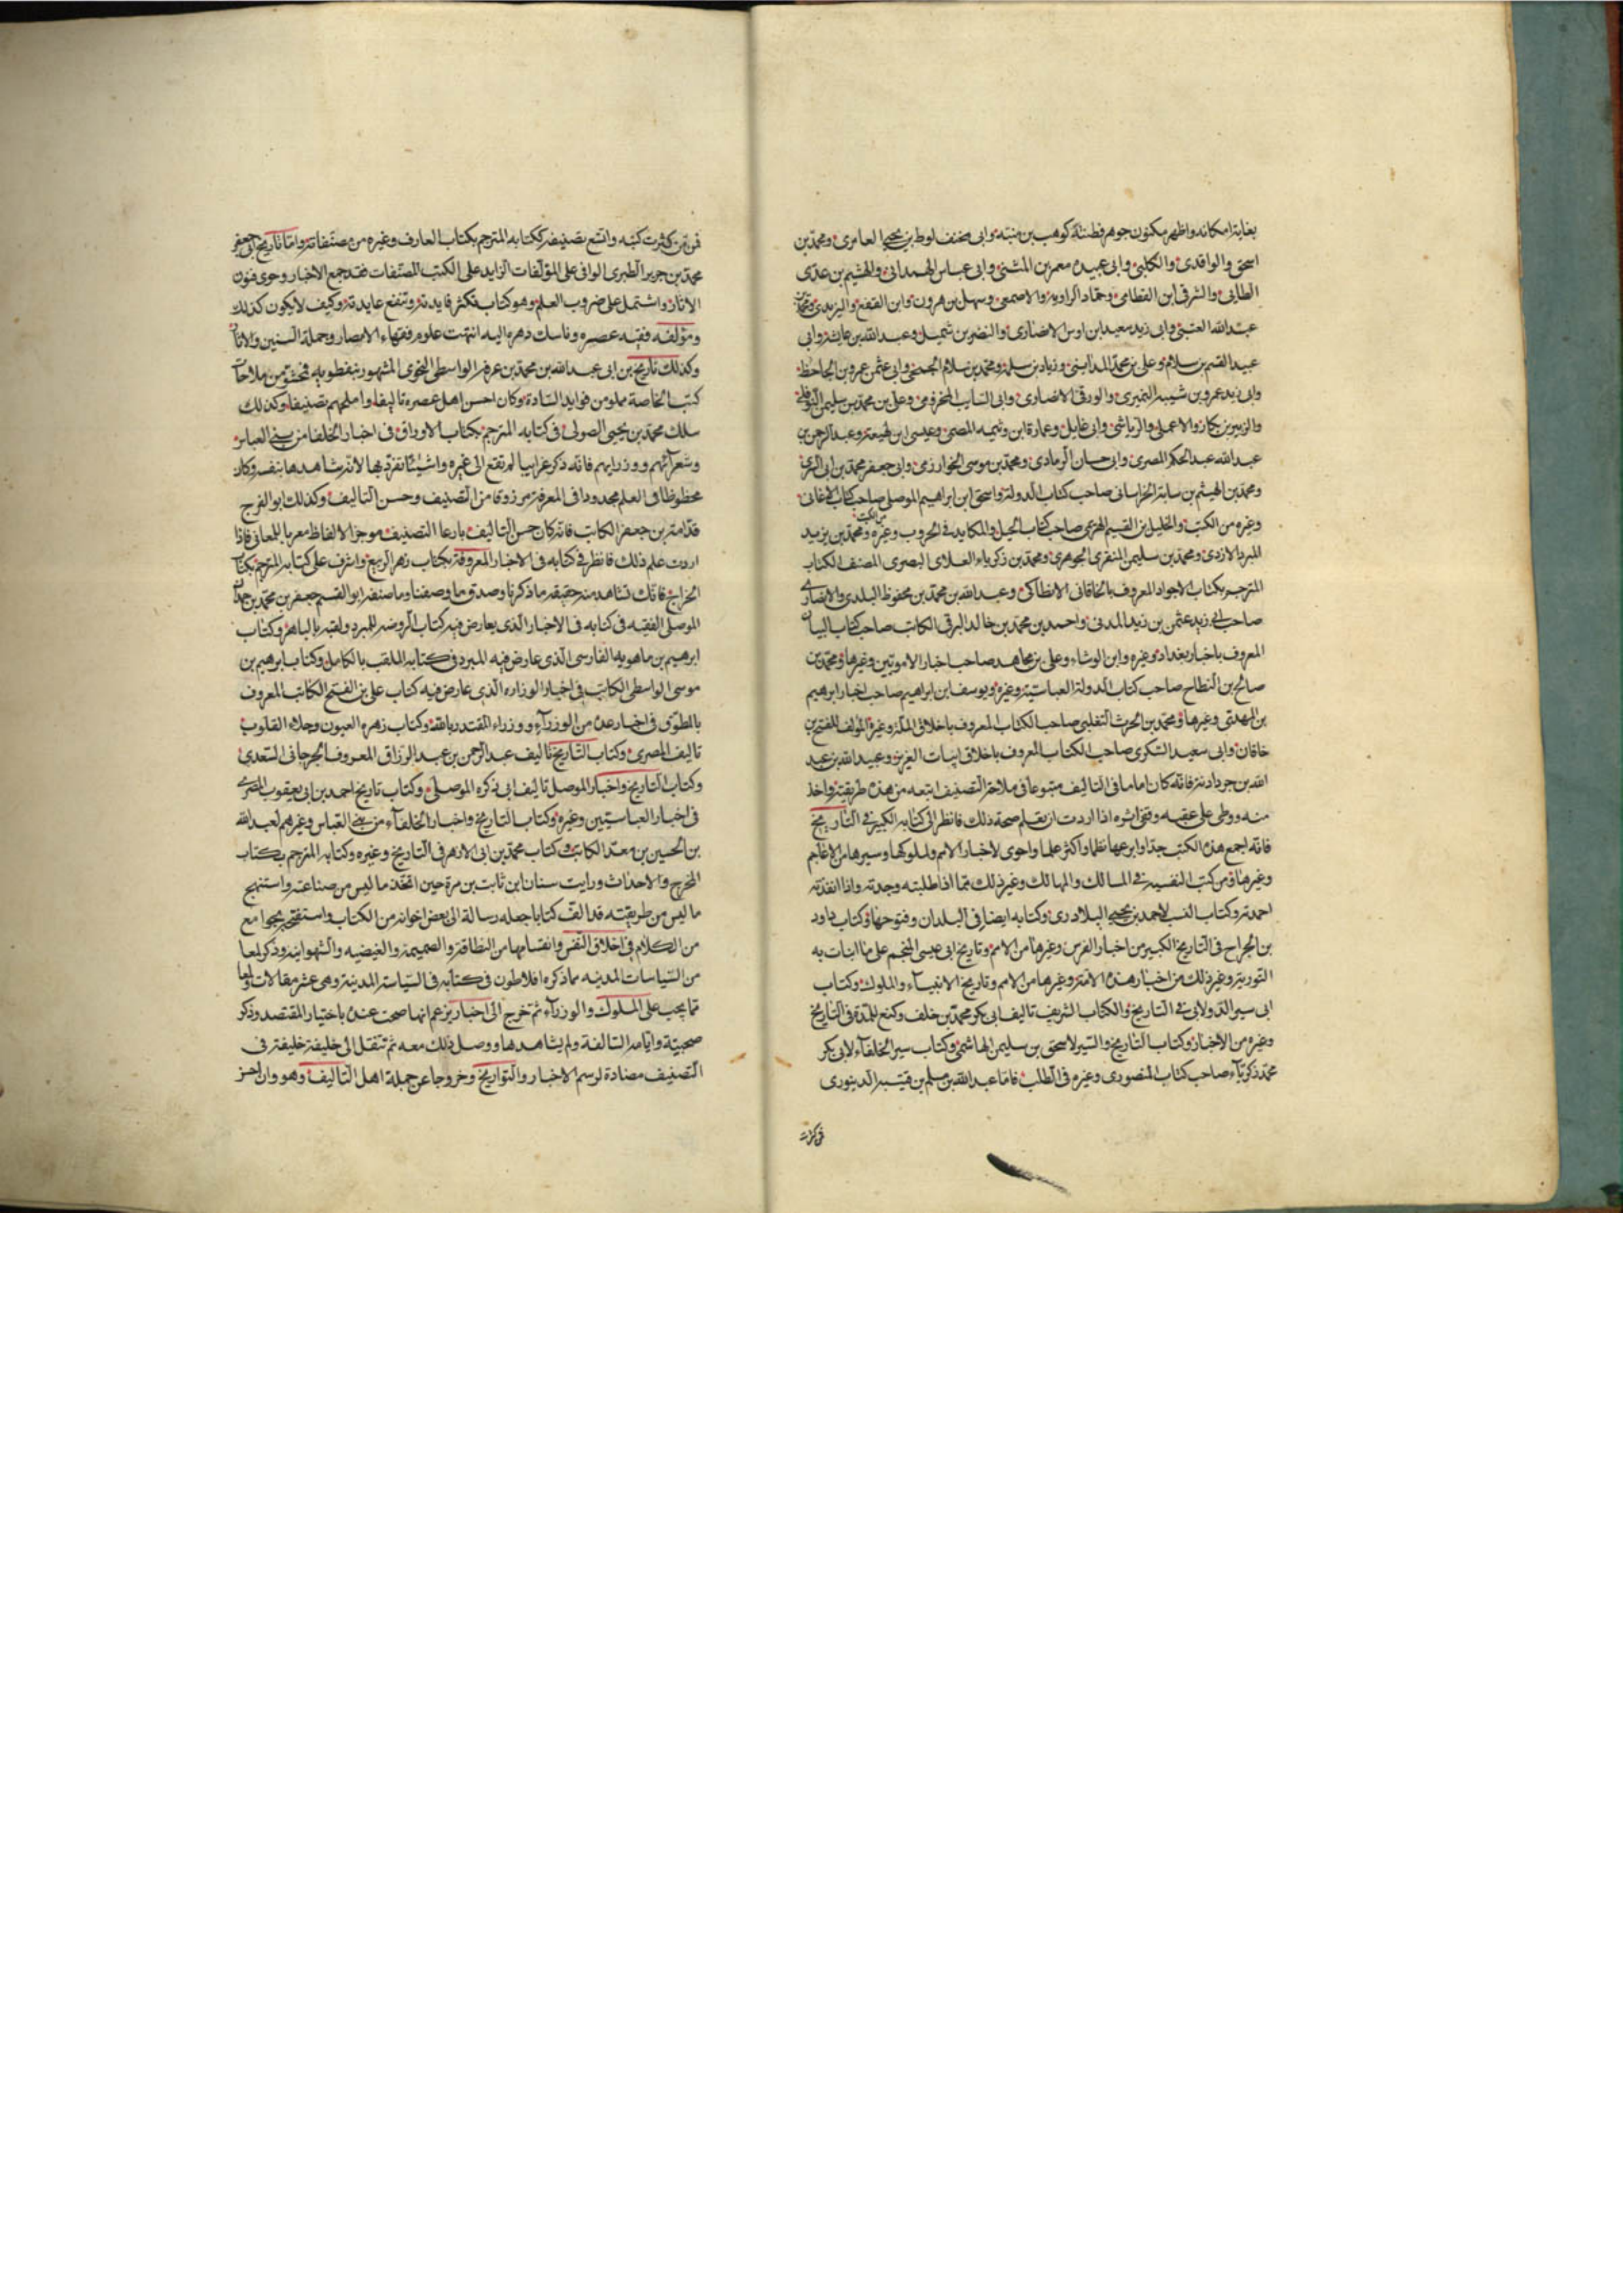 بغاية امكانه واظهر مكنون جوهر فطنته كوهب بن منبه وابى مخنف لوط بن يحيى العامرى ومحمد بن
اسحق والواقدى والكلبى وابى عبيده معمر بن المثنى وابى عباس الهمدانى والهيثم بن عدى
الطائى والشرقى ابن القطامى وحماد الراويه والاصمعى وسهل بن هرون وابن المقفع واليزيدى ومحمد بن
عبد الله العتبى وابى زيد سعيد ابن اوس الانصارى والنضر بن شميل وعبد الله بن عايشه وابى
عبيد القسم بن سلام وعلى بن محمد المداينى وزياد بن سلمة ومحمد بن سلام الجمحى وابى عثمن عمرو بن الجاحظ
وابى زيد عمرو بن شيبه النميرى والورقى الانصارى وابى السايب المخزومى وعلى بن محمد بن سليمن النوفلى
والزبير بن بكار والاعملى والرياشى وابى عايل وعمارة ابن وثيمه المصرى وعيسى ابن لهيعة وعبد الرحمن بن
عبد الله عبد الحكم المصرى وابى حسان الرمادى ومحمد بن موسى الخوارزمى وابى جعفر محمد بن ابى السرى
ومحمد بن الهيثم بن سابة الخراسانى صاحب كتاب الدولة واسحق ابن ابراهيم الموصلى صاحب كتاب الاغانى
وغيره من الكتب والخليل بن القسيم الهزى صاحب كتاب الحيل والمكايد فى الحروب وغيره من الكتب ومحمد بن يزيد
المبرد الازدى ومحمد بن سليمن المنقرى الجوهرى ومحمد بن زكرياء العلاى البصرى المصنف الكتاب
المترجم بكتاب الاجواد المعروف بالخاقانى الانطاكى وعبد الله بن محمد بن محفوظ البلدى والانصارى
صاحب ابى زيد عثمن بن زيد المدنى واحمد بن محمد بن خالد البرقى الكاتب صاحب كتاب البيان
المعروف باخبار بغداد وغيره وابن الوشاء وعلى بن مجاهد صاحب اخبار الامويين وغيرها ومحمد بن
صالح بن النطاح صاحب كتاب الدولة العباسية وغيره ويوسف ابن ابراهيم صاحب اخبار ابرهيم
بن المهدى وغيرها ومحمد بن الحرث التغلبى صاحب الكتاب المعروف باخلاق الملك وغيره المولف للفتح بن
خاقان وابى سعيد السكرى صاحب الكتاب المعروف باخلاق ابيات العرب وعبيد الله بن عبد
الله بن جردادبه فانه كان اماما فى التاليف متبوعا فى ملاحة التصنيف اتبعه من هذه طريقته واخذ
منه ووطى على عقبه وقفى اثره اذا اردت ان تعلم صحة ذلك فانظر الى كتابه الكبير فى التاريخ
فانه اجمع هذه الكتب جدا وابرعها نظما واكثر علما واحوى لاخبار الامم وملوكها وسيرها من الاعاجم
وغيرها ومن كتبه النفيسه فى المسالك والممالك وغير ذلك مما اذا طلبته وجدته واذا انفدته
احمدته وكتاب النسب لاحمد بن يحيى البلادرى وكتابه ايضا فى البلدان وفتوحها وكتاب داود
بن الجراح فى التاريخ الكبير من اخبار الفرس وغيرها من الامم وتاريخ ابى عيسى المنجم على ما انبات به
التورية وغير ذلك من اخبار هذه الامة وغيرها من الامم وتاريخ الانبياء والملوك وكتاب
ابى سير الدولابى فى التاريخ والكتاب الشريف تاليف ابى بكر محمد بن خلف وكنع للمدة فى التاريخ
وغيره من الاخبار وكتاب التاريخ والسير لاسحق بن سليمن الهاشمى وكتاب سير الخلفاء لابى بكر
محمد زكرياء صاحب كتاب المنصورى وغيره فى الطلب فاما عبد الله بن مسلم بن قتيبه الدينورى
فمن كثرت
فمن كثرت كتبه واتسع تصنيفه ككتابه المترجم بكتاب المعارف وغيره من مصنفاته واما تاريخ ابى جعفر
محمد بن جرير الطبرى الوافى على المؤلفات الزايد على الكتب المصنفات فقد جمع الاخبار وحوى فنون
الاثار واشتمل على ضروب العلم وهو كتاب فكثر فايدته وتنفع عايدته وكيف لا يكون كذلك
ومؤلفه فقيه عصره وناسك دهره اليه انتهت علوم فقهاء الامصار وحملة السنين والاثار
وكذلك تاريخ بن ابى عبد الله بن محمد بن عرفة الواسطى النحوى المشهور بنفطويه فمحشو من ملاحات
كتب الخاصة مملو من فوايد السادة وكان احسن اهل عصره تاليفا واملحهم تصنيفا وكذلك
سلك محمد بن يحيى الصولى فى كتابه المترجم بكتاب الاوراق فى اخبار الخلفا من بنى العباس
وشعرائهم ووزرايهم فانه ذكر غرايبا لم تقع الى غيره واشيئا تفرد بها لانه شاهدها بنفسه وكان
محظوظا فى العلم مجدودا فى المعرفة مرزوقا من التصنيف وحسن التاليف وكذلك ابو الفرج
قدامة بن جعفر الكاتب فانه كان حسن التاليف بارعا التصنيف موجزا الالفاظ معربا للمعانى فاذا
اردت علم ذلك فانظر فى كتابه فى الاخبار المعروفة بكتاب زهر الربيع واشرف على كتابه المترجم بكتاب
الخراج فانك تشاهد منه حقيقه ما ذكرنا وصدق ما وصفنا وما صنفه ابو القسم جعفر بن محمد بن حمدان
الموصلى الفقيه فى كتابه فى الاخبار الذى يعارض فيه كتاب الروضه للمبرد ولقبه بالباهر وكتاب
ابرهيم بن ماهويه الفارسى الذى عارض فيه المبرد فى كتابه الملقب بالكامل وكتاب ابرهيم بن
موسى الواسطى الكاتب فى اخبار الوزاره الذى عارض فيه كتاب على بن الفتح الكاتب المعروف
بالمطوق فى اخبار عدة من الوزراء ووزراء المقتدر بالله وكتاب زهره العيون وجلاء القلوب
تاليف المصرى وكتاب التاريخ تاليف عبد الرحمن بن عبد الرزاق المعروف الجرجانى السعدى
وكتاب التاريخ واخبار الموصل تاليف ابى ذكره الموصلى وكتاب تاريخ احمد بن ابى يعقوب المصرى
فى اخبار العباسيين وغيره وكتاب التاريخ واخبار الخلفاء من بنى العباس وغيرهم لعبد الله
بن الحسين بن سعد الكاتب وكتاب محمد بن ابى الازهر فى التاريخ وغيره وكتابه المترجم بكتاب
الهرج والاحداث ورايت سنان ابن ثابت بن مرة حين اتخذ ما ليس من صناعته واستنهج
ما ليس من طريقته قد الف كتابا جعله رسالة الى بعض اخوانه من الكتاب واستفتحه بجوامع
من الكلام فى اخلاق النفس وانقسامها من النطاقة والصميمة والغضبيه والشهوانيه وذكر لمعا
من السياسات المدنيه مما ذكره افلاطون فى كتابه فى السياسة المدينة وهى عشر مقالات ولمعا
مما يجب على الملوك والوزراء ثم تخرج الى اخبار يزعم انها صحت عنده باختيار المقتصد وذكر
صحبته وايامه السالفة ولم يشاهدها ووصل ذلك معه ثم تنقل الى خليفة خليفة فى
التصنيف مضادة لرسم الاخبار والتواريخ وخروجا عن جملة اهل التاليف وهو وان احسن